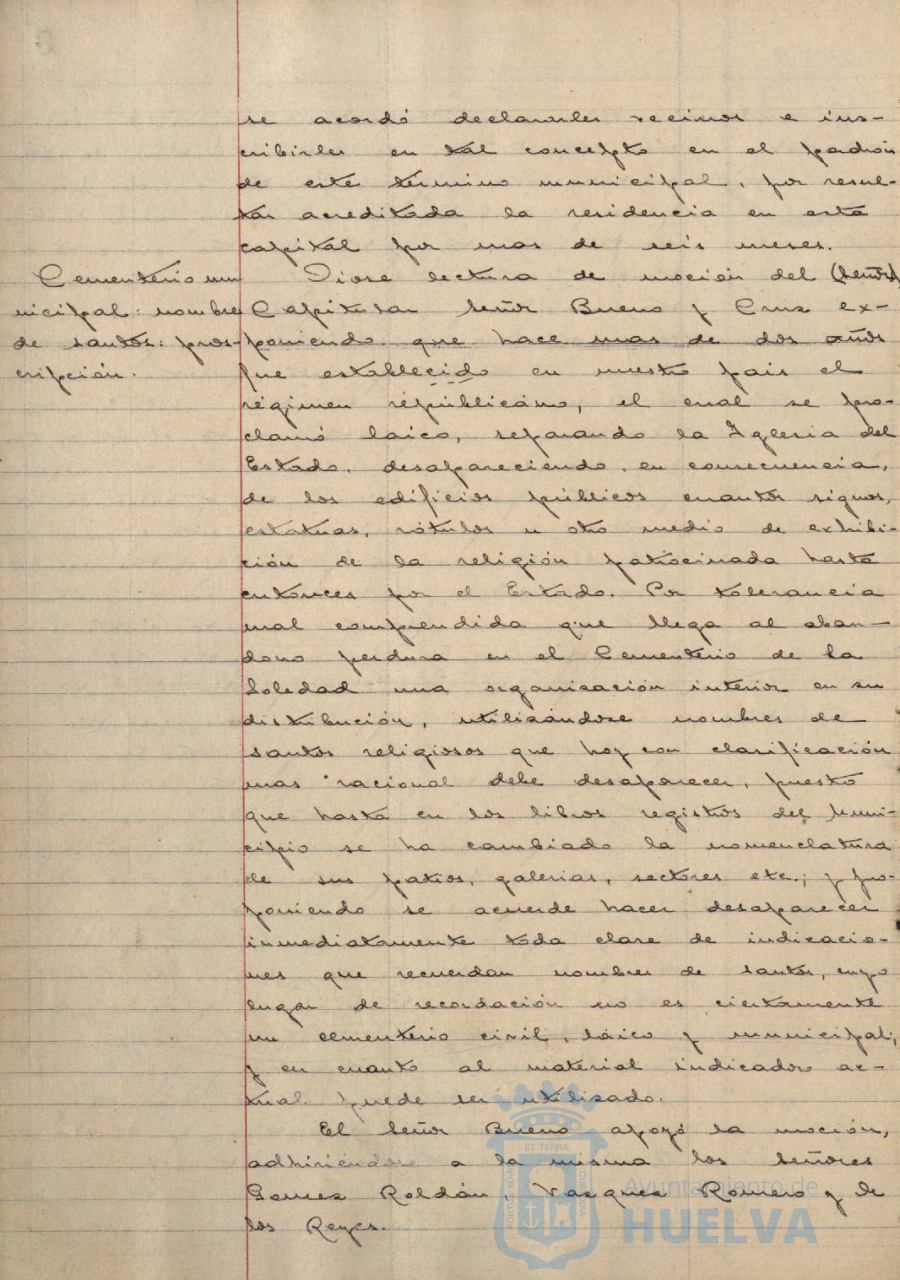 se acordó declararles vecinos e ins-
cribirles en tal concepto en el padrón
de este término municipal, por resul-
tar acreditada la residencia en esta
capital por mas de seis meses.
Cementerio mu
nicipal: nombre
de santos: pros-
cripción.
Diose lectura de moción del (señor)
Capitular señor Bueno y Cruz ex-
poniendo que hace mas de dos años
fue establecido en nuestro pais el
régimen républicano, el cual se pro-
clamó laico, separando la Iglesia del
Estado, desapareciendo, en consecuencia,
de los edificios públicos cuantos signos,
estatuas, rótulos u otro medio de exhibi-
ción de la religión patrocinada hasta
entonces por el Estado. Por tolerancia
mal comprendida que llega al aban-
dono perdura en el Cementerio de la
Soledad una organización interior en su
distribución, utilizándose nombres de
santos religiosos que hoy con clarificación
mas racional debe desaparecer, puesto
que hasta en los libros registros del Muni-
cipio se ha cambiado la nomenclatura
de sus patios, galerias, sectores etc.; y pro-
poniendo se acuerde hacer desaparecer
inmediatamente toda clase de indicacio-
nes que recuerdan nombres de santos, cuyo
lugar de recordación no es ciertamente
un cementerio civil, láico y municipal;
y en cuanto al material indicador ac-
tual puede ser utilizado.
El señor Bueno apoyó la moción,
adhiriendose a la misma los señores
Gomez Roldán, Vazquez Romero y de
los Reyes.
Ayuntamiento de
HUELVA